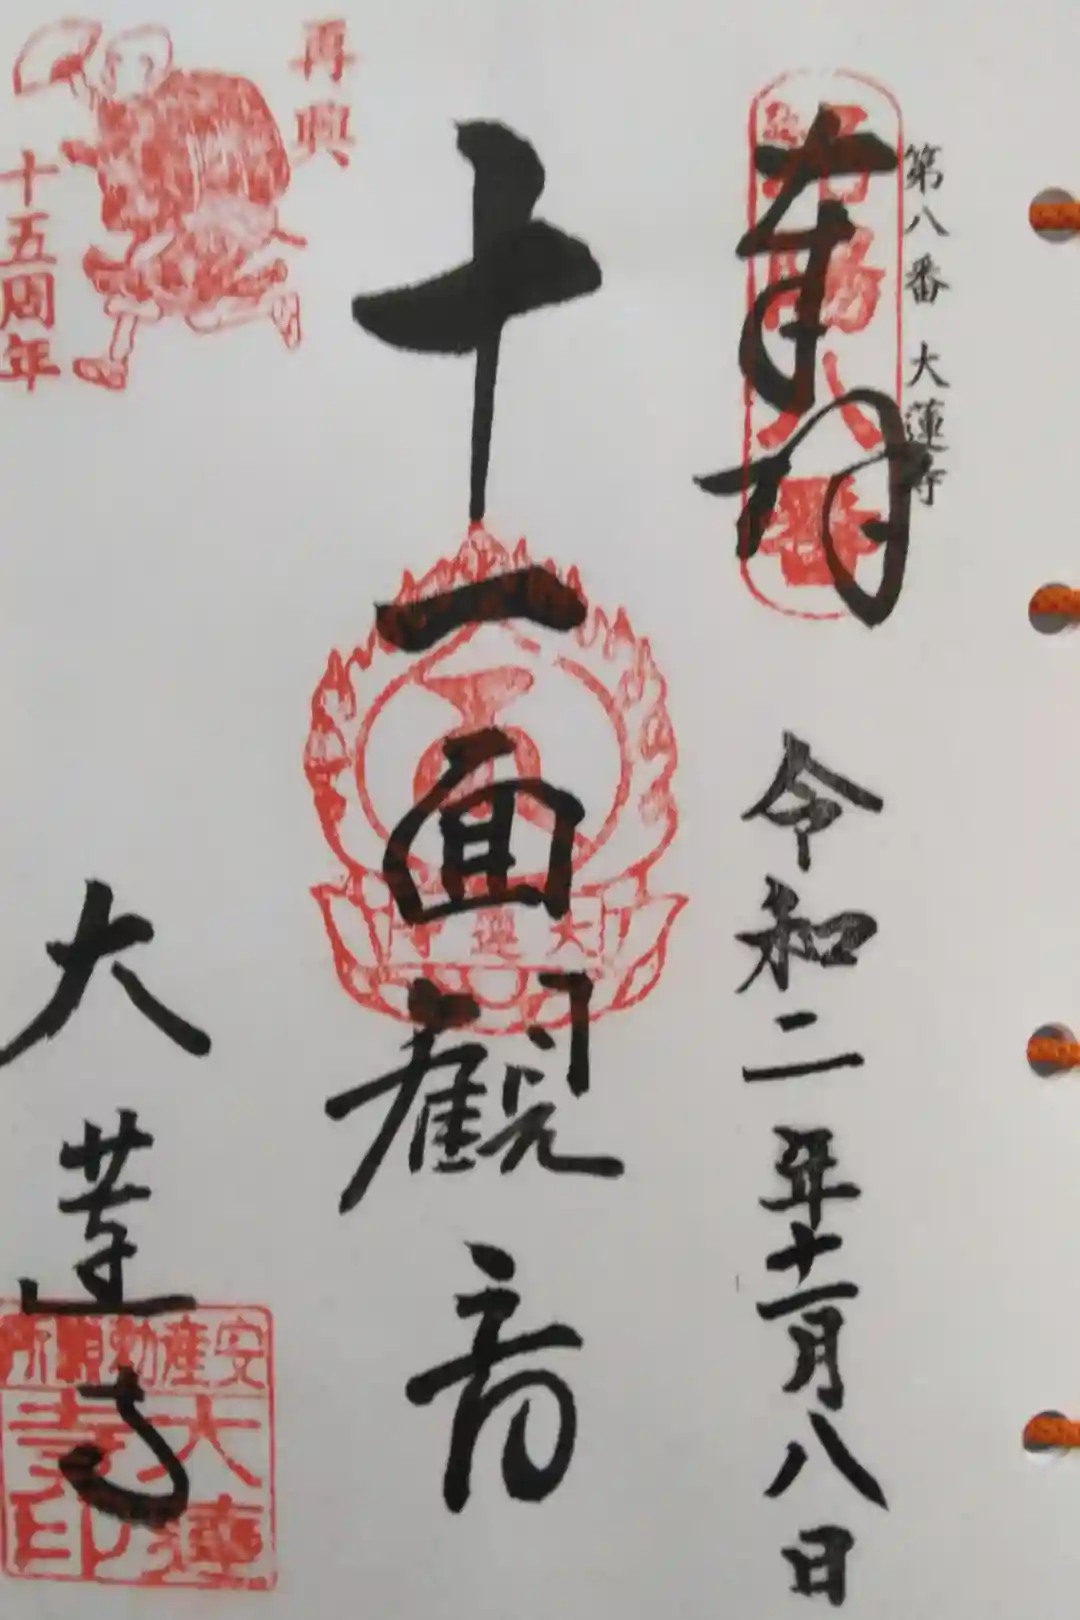 第八番 大蓮寺
奉拝
令和二年十一月八日
十一面観音
大蓮寺
再興
十五周年
大蓮寺
安産勅願所
大蓮寺印